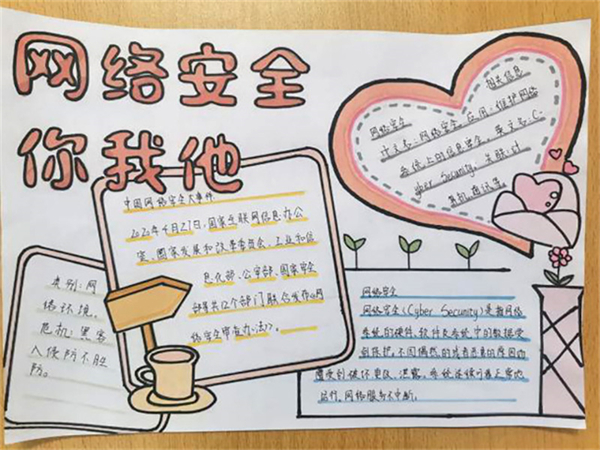 网络安全
你我他
相关信息
网络安全
计文名:网络安全,应用:维护网络
系统上的信息安全,英文名:C
yber Security,关联:计
算机通讯等
中国网络安全大事件
2020年4月27日,国家互联网信息办公
室、国家发展和改革委员会、工业和信
息化部、公安部、国家安全
部等共12个部门联合发布《网
络安全审查办法》。
类别:网
络环境,
危机:黑客
入侵防不胜
防。
网络安全
网络安全(Cyber Security)是指网络
系统的硬件、软件及系统中的数据受
到保护,不因偶然的或者恶意的原因而
遭受到破坏、更改、泄露,系统连续可靠正常地
运行,网络服务不中断。